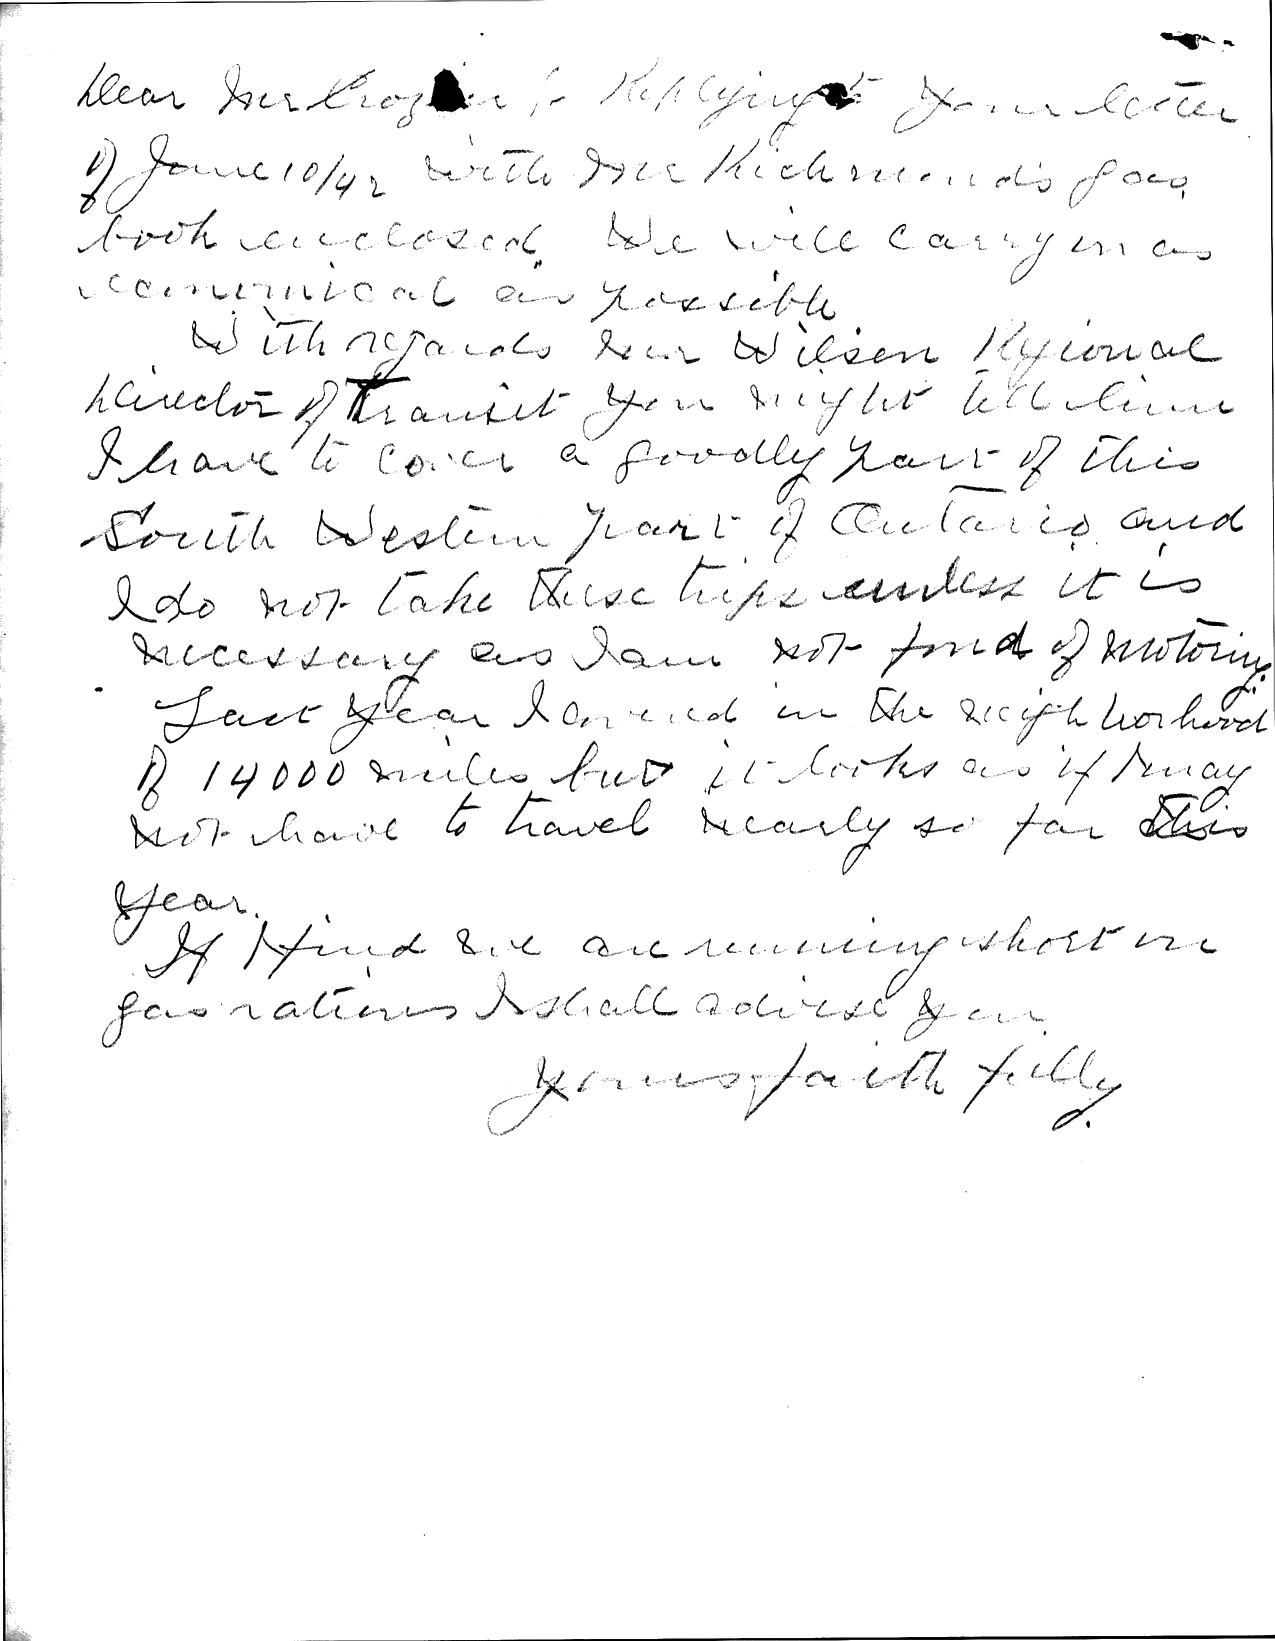 Dear Mr Crozier :- Replying to your letter
of June 10/42 with Mr Richmonds gas
book enclosed. We will carry on as
economical as possible
With regards Mr Wilson Regional
Director of Transit you might tell him
I have to cover a goodly part of this
South Western part of Ontario and
I do not take these trips unless it is
necessary as I am not fond of motoring.
Last year I covered in the neighborhood
of 14000 miles but it looks as if I may
not have to travel nearly so far this
year.
If I find we are running short on
gas rations I shall advise you.
Yours faithfully.